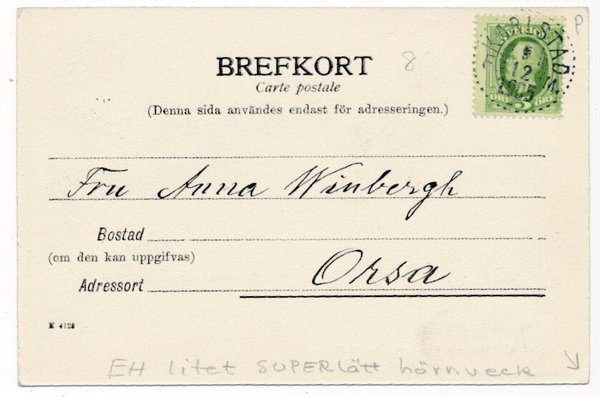 P
KARLSTAD
12
8
BREFKORT
Carte postale
(Denna sida användes endast för adresseringen.)
Fru Anna Winbergh
Bostad
(om den kan uppgifvas)
Orsa
Adressort
EH litet SUPERlätt hörnveck